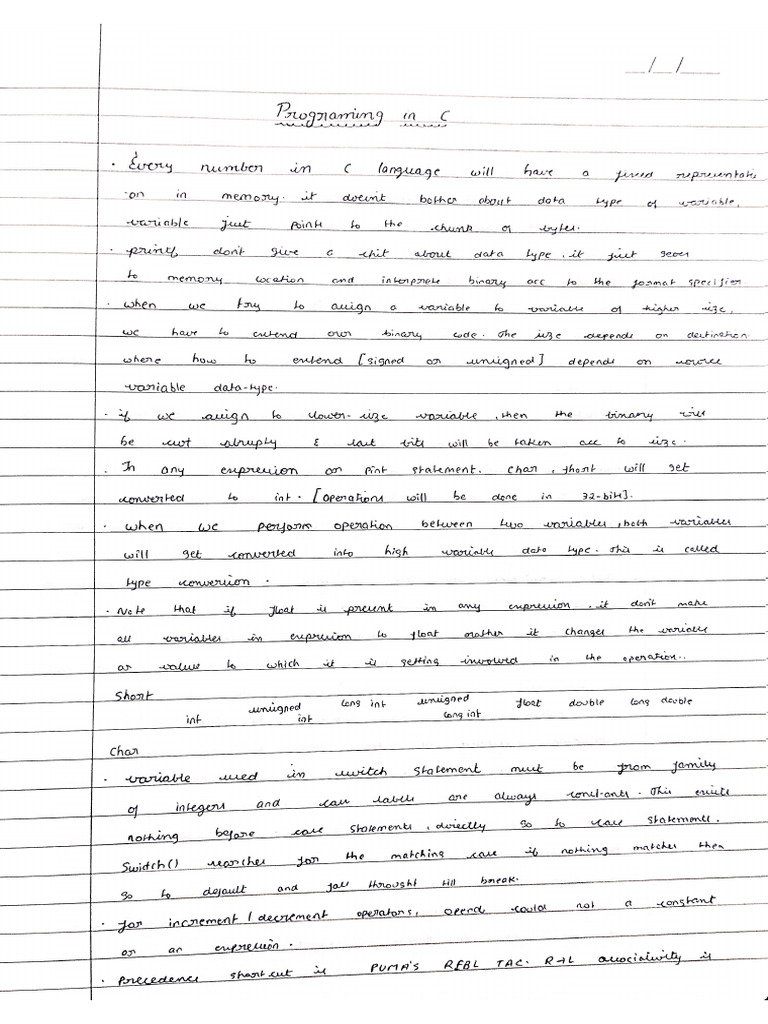 __/__/____
Programing in C
· Every number in C language will have a fixed representati
-on in memory. it doesn't bother about data type of variable,
variable just points to the chunk of bytes.
· printf don't give a shit about data type, it just goes
to memory location and interprete binary acc to the format specifier
· when we try to assign a variable to variable of higher size,
we have to extend our binary code. The size depends on destination
where how to extend [signed or unsigned] depends on source
variable data-type.
· if we assign to lower-size variable, then the binary will
be cut abruptly & last bits will be taken acc to size.
· In any expression or pint statement. char, short will get
converted to int. [operations will be done in 32-bit].
· when we perform operation between two variables, both variables
will get converted into high variable data type. This is called
type conversion.
· Note that if float is present in any expression, it don't make
all variables in expression to float rather it changes the variable
or value to which it is getting involved in the operation.
Short
int unsigned int long int unsigned long int float double long double
Char
· variable used in switch statement must be from family
of integers and case labels are always constants. This exists
nothing before case statements, directly go to case statements.
Switch() searches for the matching case if nothing matches then
go to default and fall throught till break.
· for increment/decrement operators, operd could not a constant
or an expression.
· precedence shortcut is PUMA'S REBL TAC. R→L associativity is